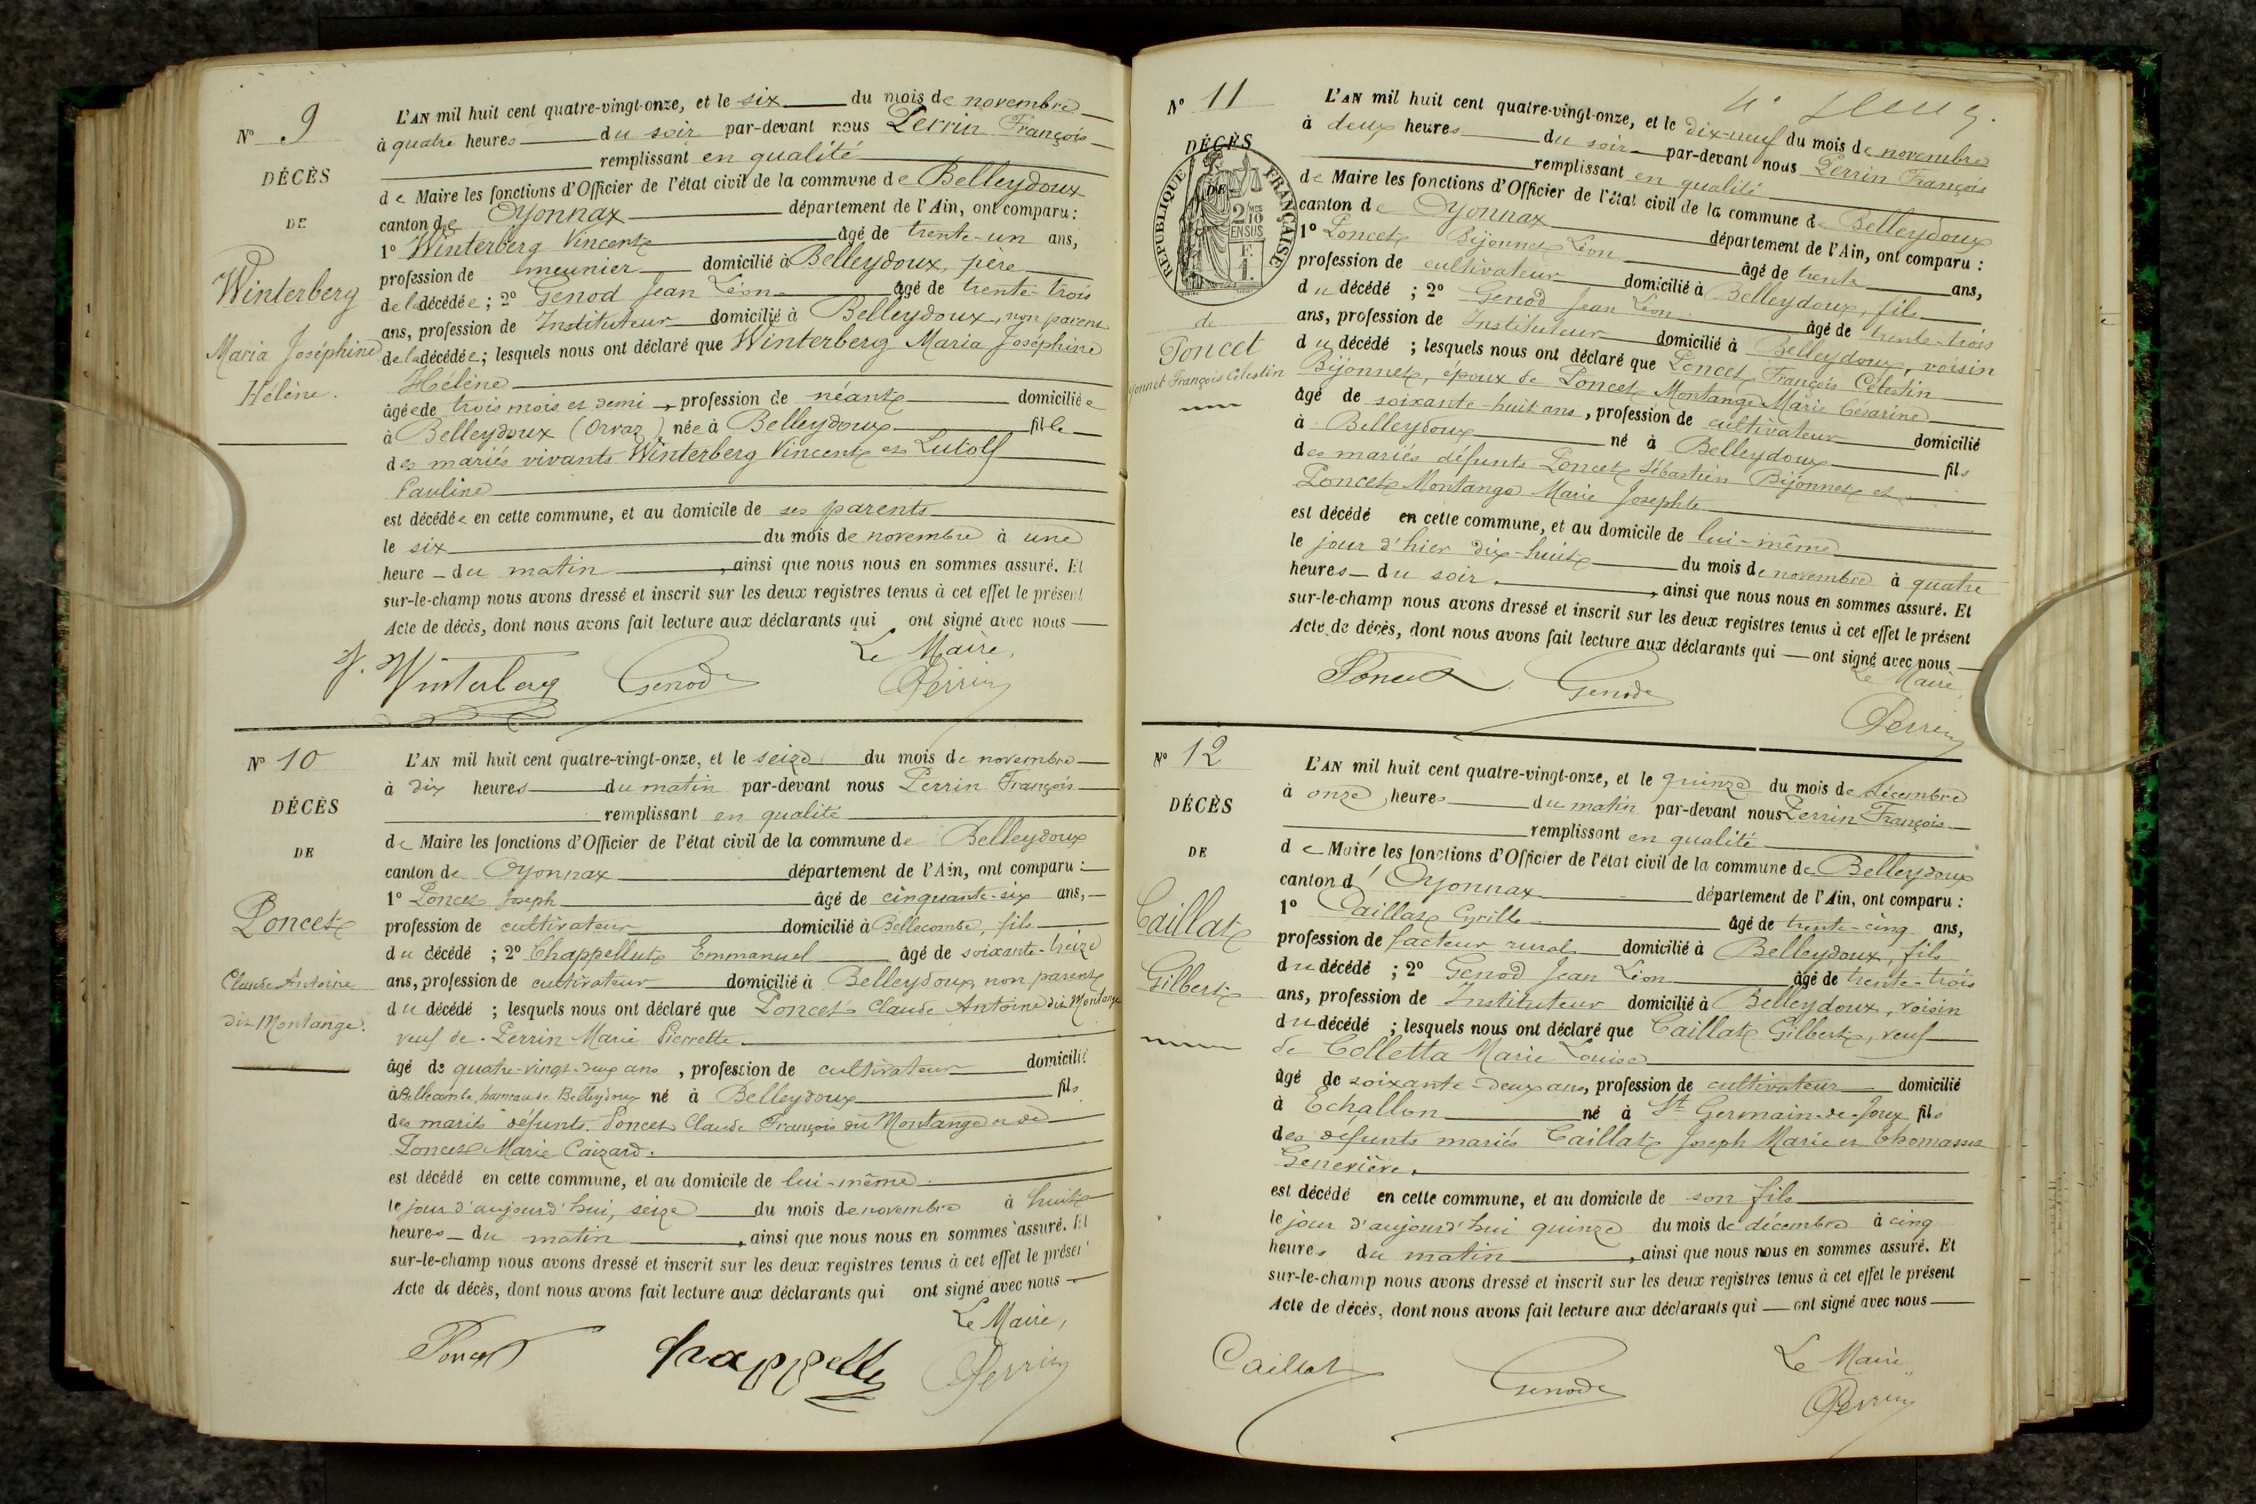 N° 9
DÉCÈS
DE
Winterberg
Maria Joséphine
Hélène.
L'AN mil huit cent quatre-vingt-onze, et le six du mois de novembre
à quatre heures du soir par-devant nous Perrin François
remplissant en qualité
de Maire les fonctions d'Officier de l'état civil de la commune de Belleydoux
canton de Oyonnax département de l'Ain, ont comparu :
1° Winterberg Vincent âgé de trente-un ans,
profession de meunier domicilié à Belleydoux, père
de la décédée ; 2° Genod Jean Léon âgé de trente-trois
ans, profession de Instituteur domicilié à Belleydoux, non parent
de la décédée ; lesquels nous ont déclaré que Winterberg Maria Joséphine
Hélène
âgée de trois mois et demi, profession de néant domiciliée
à Belleydoux (Orvaz) née à Belleydoux fille
des mariés vivants Winterberg Vincent et Lutolf
Pauline
est décédée en cette commune, et au domicile de ses parents
le six du mois de novembre à une
heure du matin, ainsi que nous nous en sommes assuré. Et
sur-le-champ nous avons dressé et inscrit sur les deux registres tenus à cet effet le présent
Acte de décès, dont nous avons fait lecture aux déclarants qui ont signé avec nous
Le Maire,
V. Winterberg Genod Perrin
N° 10
DÉCÈS
DE
Poncet
Claude Antoine
dit Montange.
L'AN mil huit cent quatre-vingt-onze, et le seize du mois de novembre
à dix heures du matin par-devant nous Perrin François
remplissant en qualité
de Maire les fonctions d'Officier de l'état civil de la commune de Belleydoux
canton de Oyonnax département de l'Ain, ont comparu :
1° Poncet Joseph âgé de cinquante-six ans,
profession de cultivateur domicilié à Bellecombe, fils
du décédé ; 2° Chappelluz Emmanuel âgé de soixante-treize
ans, profession de cultivateur domicilié à Belleydoux, non parent
du décédé ; lesquels nous ont déclaré que Poncet Claude Antoine dit Montange
veuf de Perrin Marie Pierrette
âgé de quatre-vingt-deux ans, profession de cultivateur domicilié
à Bellecombe, hameau de Belleydoux né à Belleydoux fils
des mariés défunts Poncet Claude François dit Montange et de
Poncet Marie Caizard.
est décédé en cette commune, et au domicile de lui-même
le jour d'aujourd'hui, seize du mois de novembre à huit
heures du matin, ainsi que nous nous en sommes assuré. Et
sur-le-champ nous avons dressé et inscrit sur les deux registres tenus à cet effet le présent
Acte de décès, dont nous avons fait lecture aux déclarants qui ont signé avec nous
Le Maire,
Poncet Chappellu Perrin
N° 11
DÉCÈS
DE
RÉPUBLIQUE FRANÇAISE
2/10 EN SUS
F. 1.
de
Poncet
Bijonnet François Célestin
L'AN mil huit cent quatre-vingt-onze, et le dix-neuf du mois de novembre
à deux heures du soir par-devant nous Perrin François
remplissant en qualité
de Maire les fonctions d'Officier de l'état civil de la commune de Belleydoux
canton de Oyonnax département de l'Ain, ont comparu :
1° Poncet Bijonnet Léon âgé de trente ans,
profession de cultivateur domicilié à Belleydoux, fils
du décédé ; 2° Genod Jean Léon âgé de trente-trois
ans, profession de Instituteur domicilié à Belleydoux, voisin
du décédé ; lesquels nous ont déclaré que Poncet François Célestin
Bijonnet, époux de Poncet Montange Marie Césarine
âgé de soixante-huit ans, profession de cultivateur domicilié
à Belleydoux né à Belleydoux fils
des mariés défunts Poncet Sébastien Bijonnet et
Poncet Montange Marie Josephte
est décédé en cette commune, et au domicile de lui-même
le jour d'hier dix-huit du mois de novembre à quatre
heures du soir, ainsi que nous nous en sommes assuré. Et
sur-le-champ nous avons dressé et inscrit sur les deux registres tenus à cet effet le présent
Acte de décès, dont nous avons fait lecture aux déclarants qui ont signé avec nous
Le Maire,
Poncet Genod Perrin
N° 12
DÉCÈS
DE
Caillat
Gilbert
L'AN mil huit cent quatre-vingt-onze, et le quinze du mois de décembre
à onze heures du matin par-devant nous Perrin François
remplissant en qualité
de Maire les fonctions d'Officier de l'état civil de la commune de Belleydoux
canton d'Oyonnax département de l'Ain, ont comparu :
1° Caillat Cyrille âgé de trente-cinq ans,
profession de facteur rural domicilié à Belleydoux, fils
du décédé ; 2° Genod Jean Léon âgé de trente-trois
ans, profession de Instituteur domicilié à Belleydoux, voisin
du décédé ; lesquels nous ont déclaré que Caillat Gilbert, veuf
de Colletta Marie Louise
âgé de soixante-deux ans, profession de cultivateur domicilié
à Echallon né à St Germain-de-Joux fils
des défunts mariés Caillat Joseph Marie et Thomasset
Geneviève.
est décédé en cette commune, et au domicile de son fils
le jour d'aujourd'hui quinze du mois de décembre à cinq
heures du matin, ainsi que nous nous en sommes assuré. Et
sur-le-champ nous avons dressé et inscrit sur les deux registres tenus à cet effet le présent
Acte de décès, dont nous avons fait lecture aux déclarants qui ont signé avec nous
Le Maire
Caillat Genod Perrin